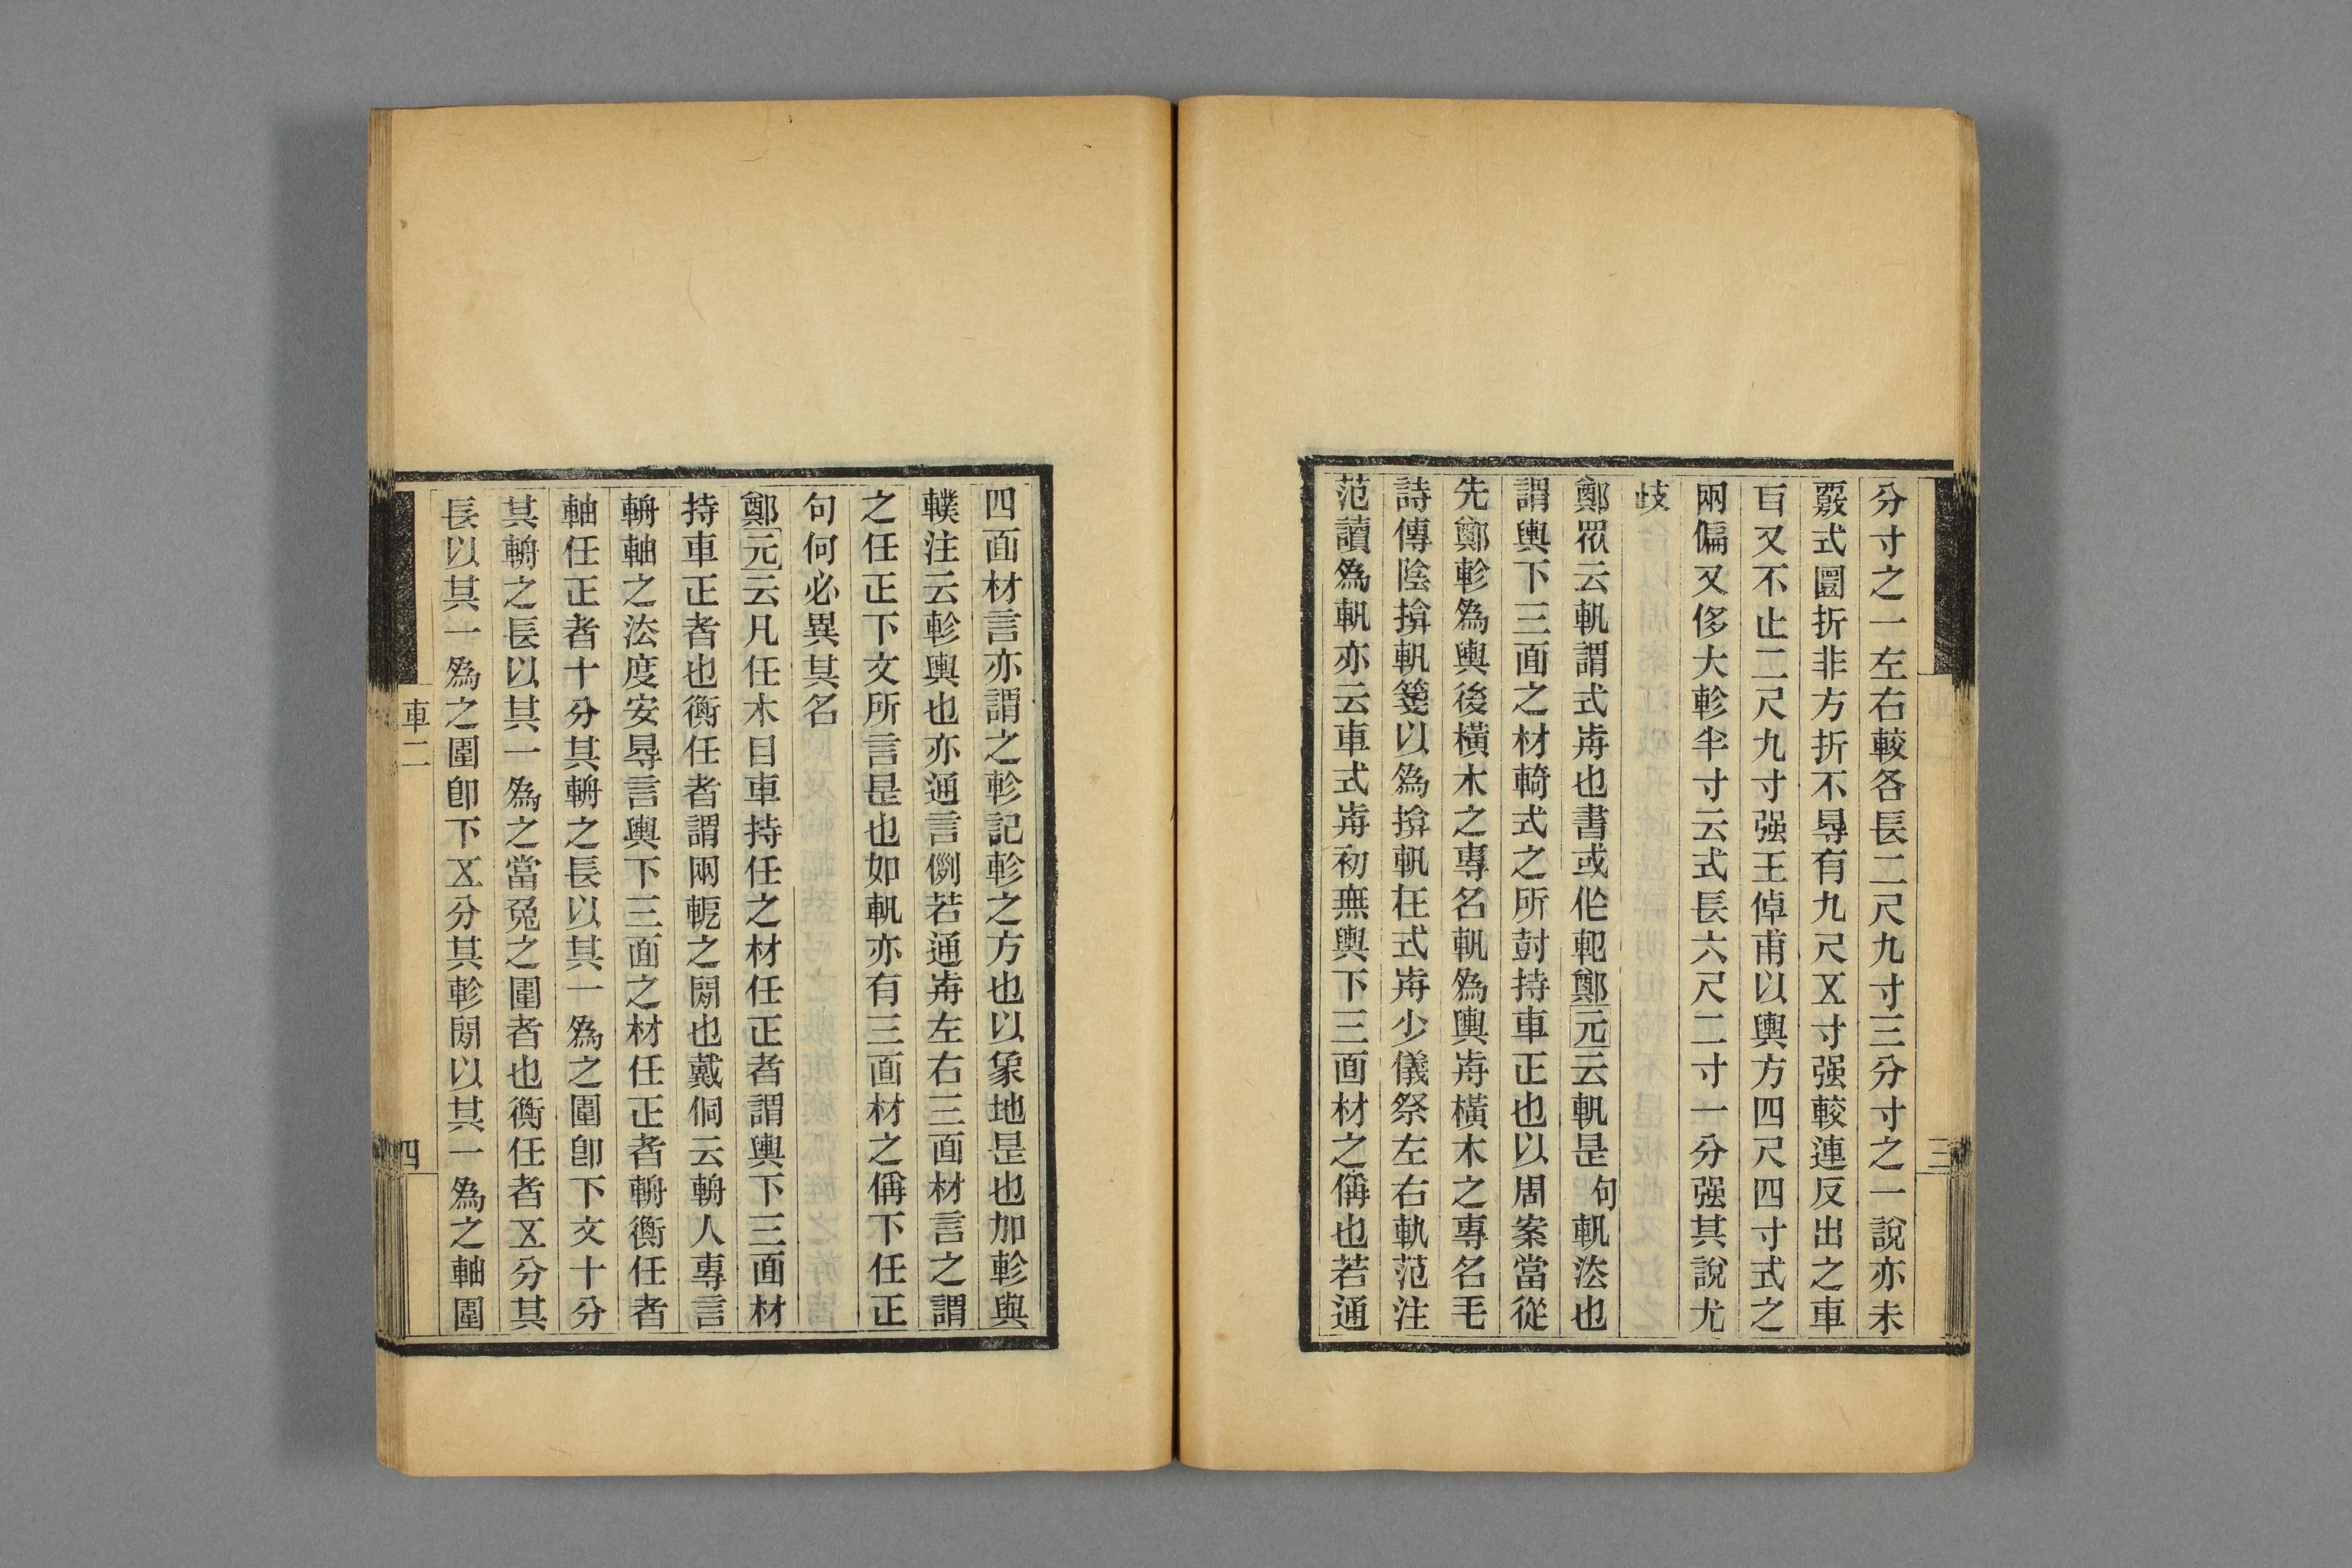 分寸之一左右較各長二尺九寸三分寸之一說亦未
覈式圜折非方折不㝵有九尺𠄡寸强較連反出之車
𦣻又不止二尺九寸强王倬甫以輿方四尺四寸式之
兩偏又侈大軫半寸云式長六尺二寸一分强其說尤
歧
鄭眾云軓謂式歬也書或作軋鄭元云軓是句軓法也
謂輿下三面之材輢式之所尌持車正也以周案當從
先鄭軫爲輿後橫木之專名軓爲輿歬橫木之專名毛
詩傳陰揜軓箋以爲揜軓在式歬少儀祭左右軌范注
范讀爲軓亦云車式歬初無輿下三面材之偁也若通
四面材言亦謂之軫記軫之方也以象地是也加軫與
轐注云軫輿也亦通言側若通歬左右三面材言之謂
之任正下文所言是也如軓亦有三面材之偁下任正
句何必異其名
鄭元云凡任木目車持任之材任正者謂輿下三面材
持車正者也衡任者謂兩軛之閒也戴侗云輈人專言
輈軸之法度安㝵言輿下三面之材任正者輈衡任者
軸任正者十分其輈之長以其一爲之圍卽下文十分
其輈之長以其一爲之當兔之圍者也衡任者𠄡分其
長以其一爲之圍卽下𠄡分其軫閒以其一爲之軸圍
車二
四
三